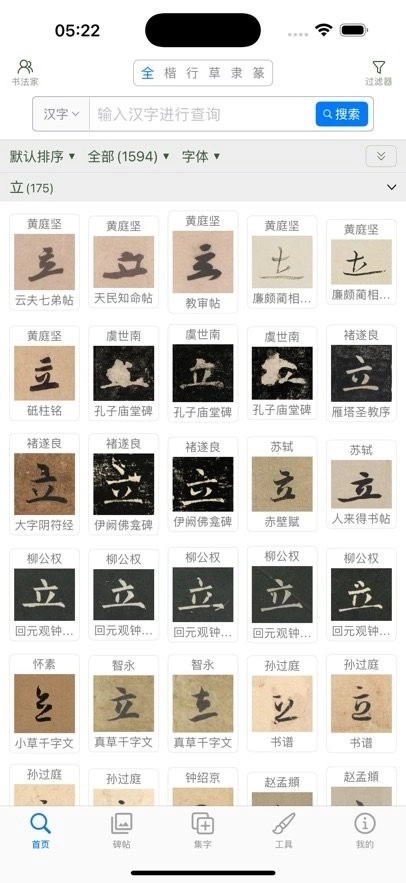 05:22
书法家
全 楷 行 草 隶 篆
过滤器
汉字 输入汉字进行查询 搜索
默认排序 全部(1594) 字体
立(175)
黄庭坚 黄庭坚 黄庭坚 黄庭坚 黄庭坚
立 立 立 立 立
云夫七弟帖 天民知命帖 教审帖 廉颇蔺相... 廉颇蔺相...
黄庭坚 虞世南 虞世南 虞世南 褚遂良
立 立 立 立 立
砥柱铭 孔子庙堂碑 孔子庙堂碑 孔子庙堂碑 雁塔圣教序
褚遂良 褚遂良 褚遂良 苏轼 苏轼
立 立 立 立 立
大字阴符经 伊阙佛龛碑 伊阙佛龛碑 赤壁赋 人来得书帖
柳公权 柳公权 柳公权 柳公权 柳公权
立 立 立 立 立
回元观钟... 回元观钟... 回元观钟... 回元观钟... 回元观钟...
怀素 智永 智永 孙过庭 孙过庭
立 立 立 立 立
小草千字文 真草千字文 真草千字文 书谱 书谱
孙过庭 孙过庭 钟绍京 赵孟頫 赵孟頫
首页 碑帖 集字 工具 我的